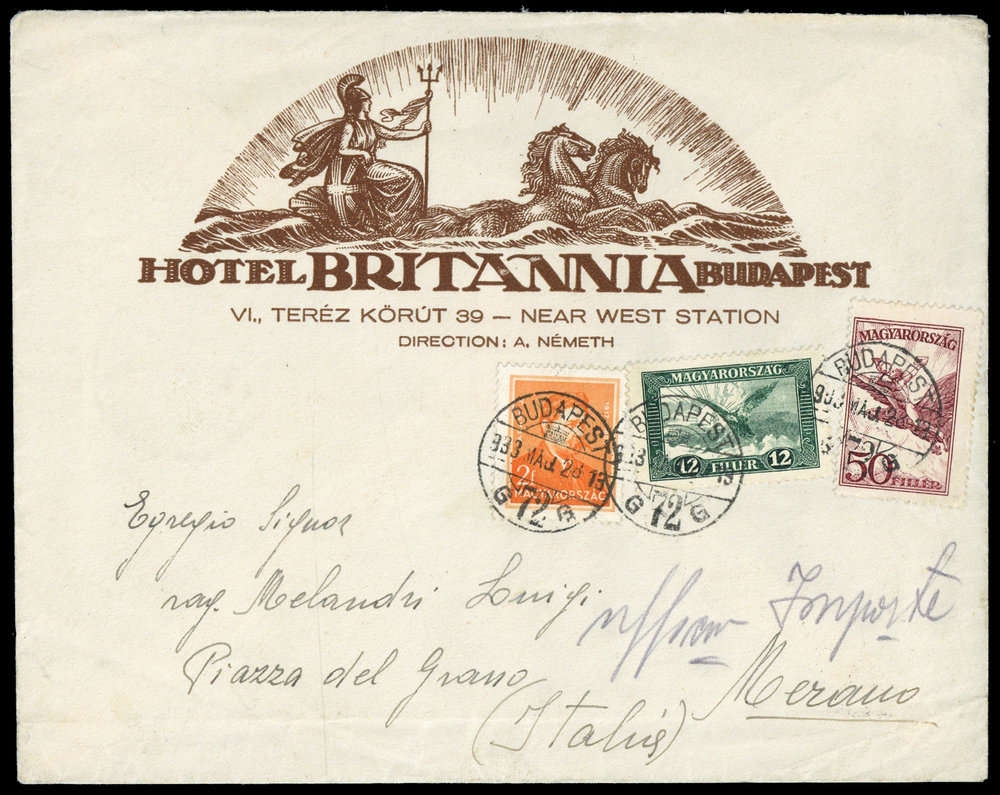 HOTEL BRITANNIA BUDAPEST
VI., TERÉZ KÖRÚT 39 — NEAR WEST STATION
DIRECTION: A. NÉMETH
MAGYARORSZÁG
50 FILLÉR
MAGYARORSZÁG
12 FILLÉR 12
2f
MAGYARORSZÁG
BUDAPEST
933 MÁJ. 26 13
G 72 G
BUDAPEST
72 G
BUDAPEST
933 MÁJ. 26 13
72 G
Egregio Signor
rag. Melandri Luigi
Importe
Piazza del Grano
Merano
(Italia)